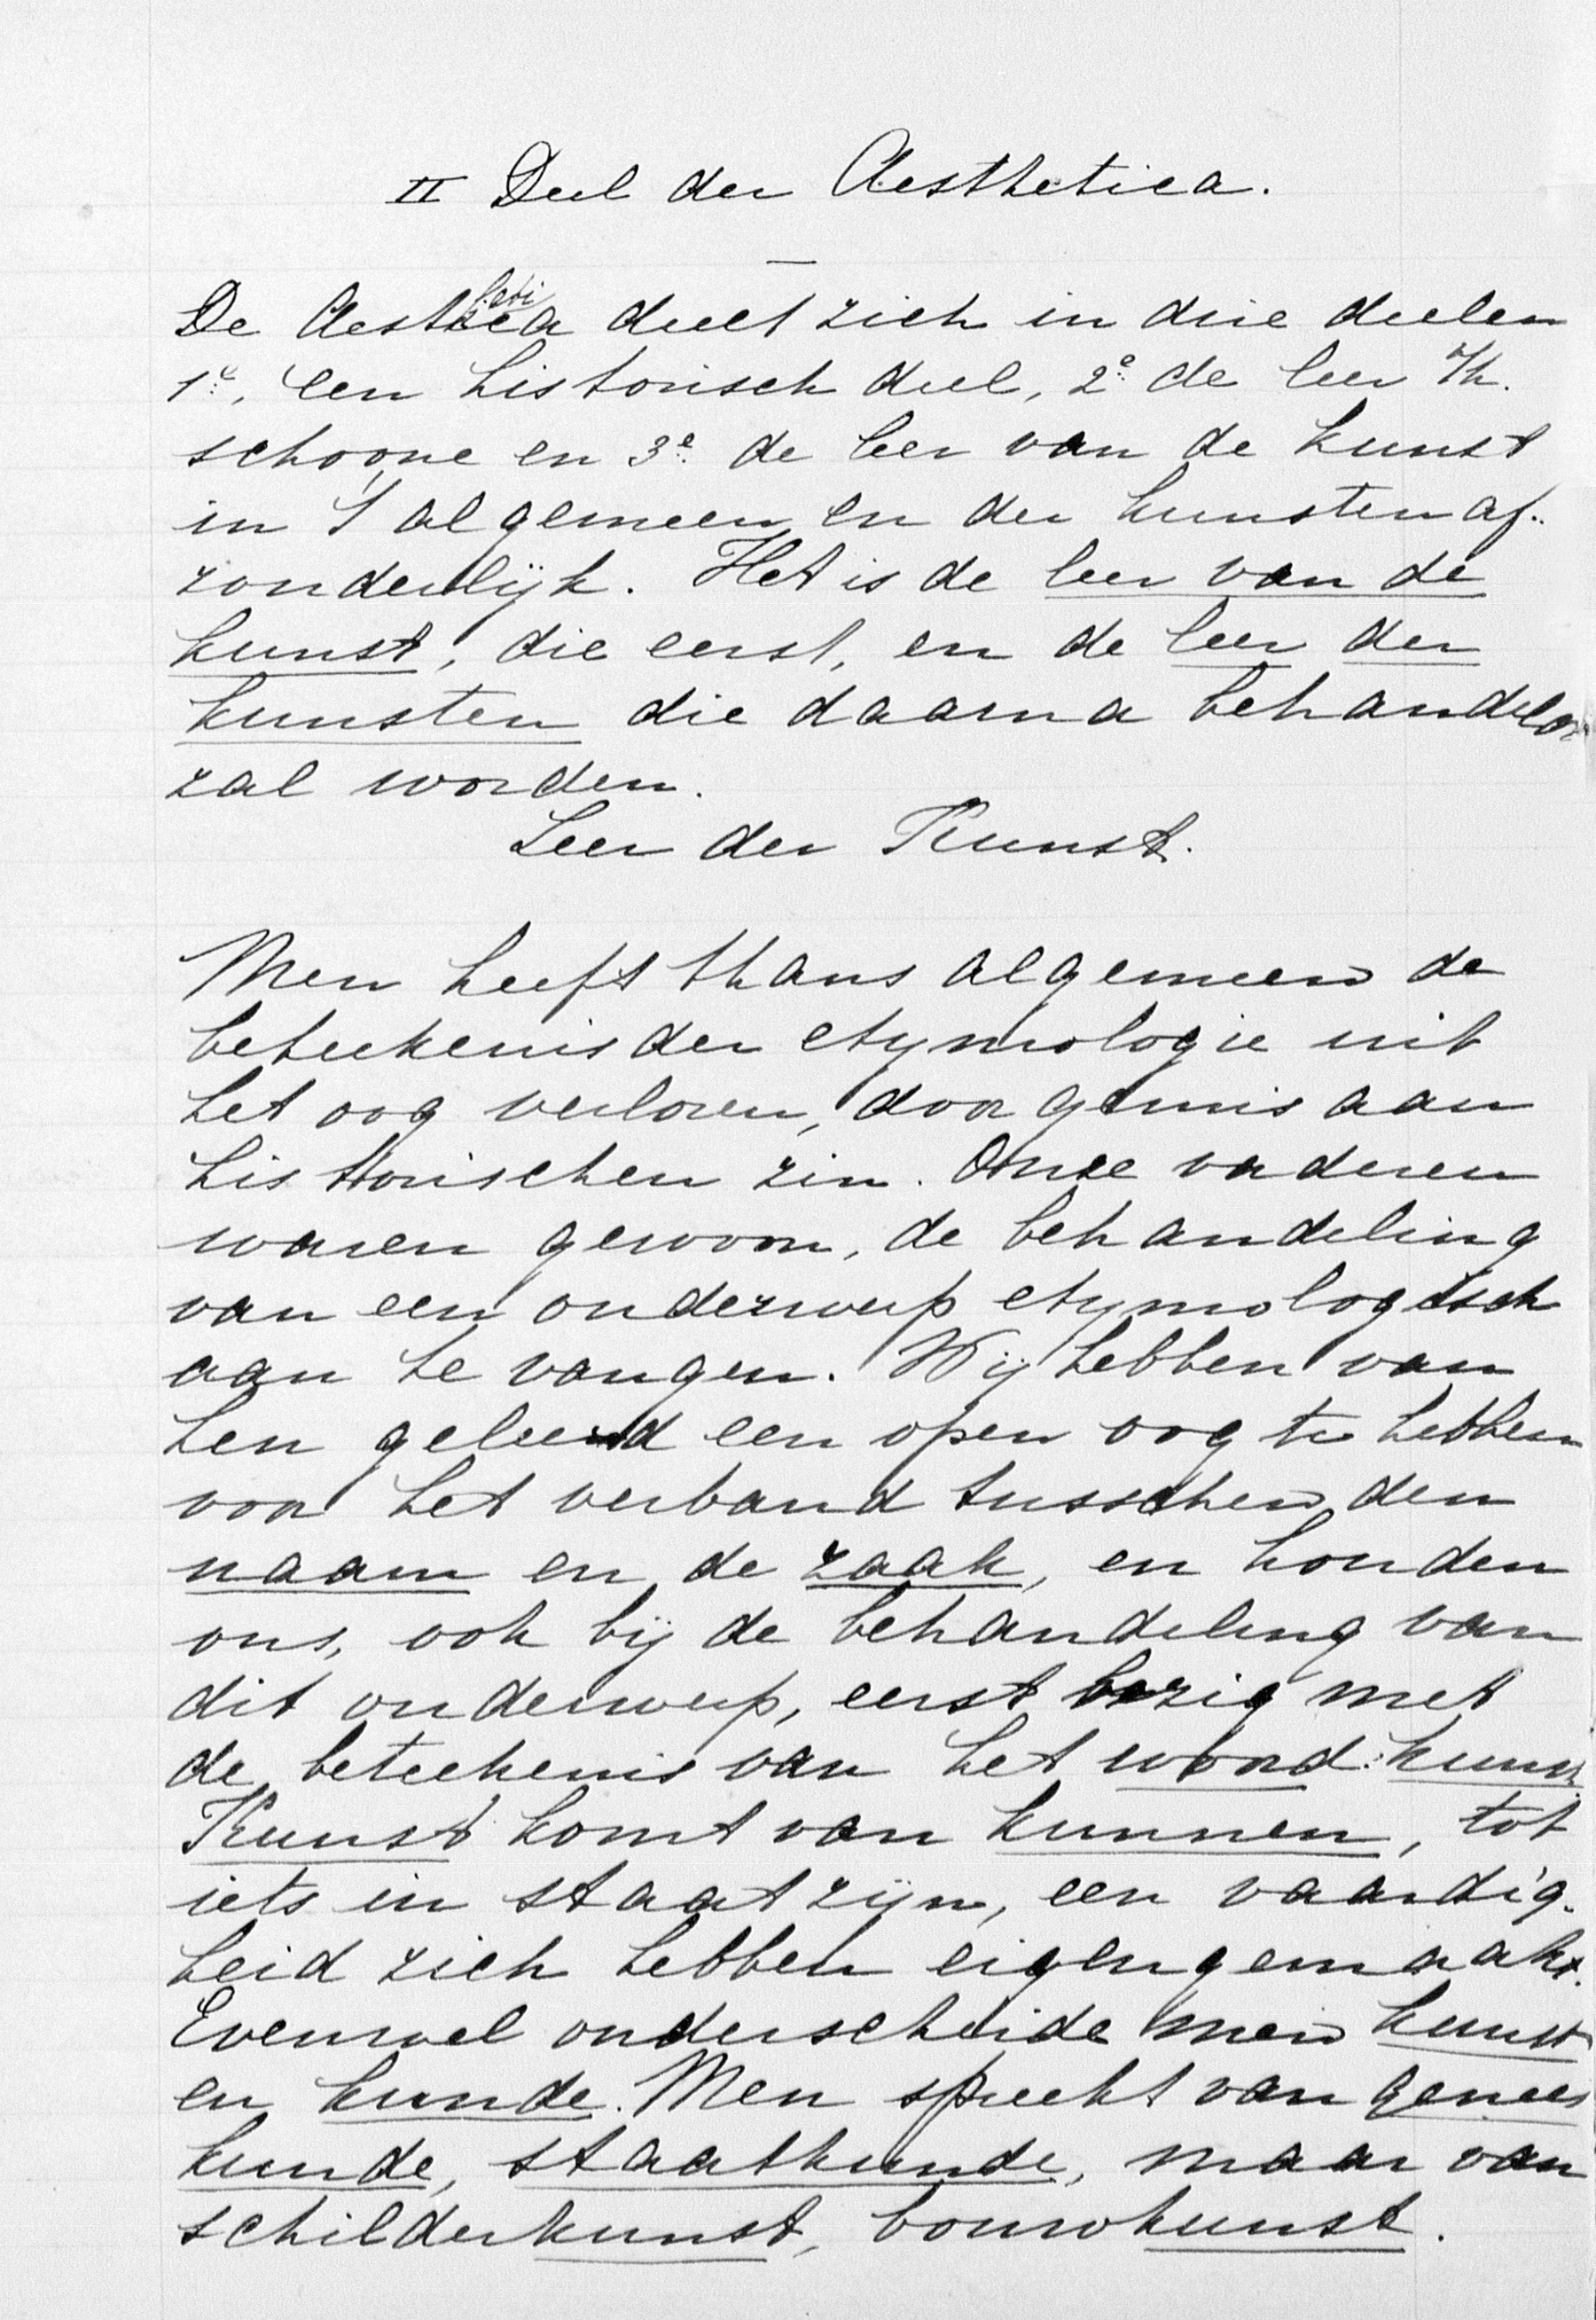 II Deel der Aesthetica.
De Aesthetica deelt zich in drie deelen
1e. een historisch deel, 2e de leer v/h.
schoone en 3e de leer van de kunst
in 't algemeen en der kunsten af-
zonderlijk. Het is de leer van de
kunst, die eerst, en de leer der
kunsten die daarna behandeld
zal worden.
Leer der Kunst.
Men heeft thans algemeen de
beteekenis der etymologie uit
het oog verloren, door gemis aan
historischen zin. Onze vaderen
waren gewoon, de behandeling
van een onderwerp etymologisch
aan te vangen. Wij hebben van
hen geleerd een open oog te hebben
voor het verband tusschen den
naam en de zaak, en houden
ons, ook bij de behandeling van
dit onderwerp, eerst bezig met
de beteekenis van het woord: kunst.
Kunst komt van kunnen, tot
iets in staat zijn, een vaardig-
heid zich hebben eigengemaakt.
Evenwel onderscheide men kunst
en kunde. Men spreekt van genees
kunde, staatkunde, maar van
schilderkunst, bouwkunst.